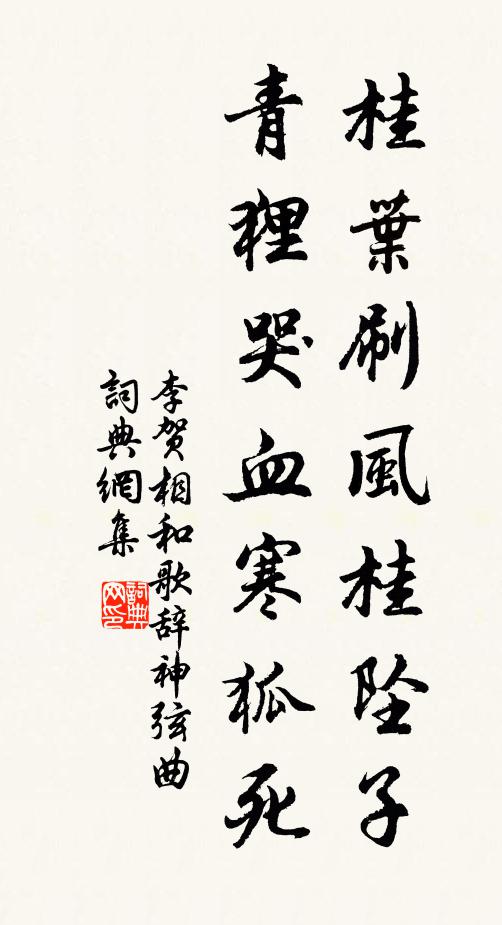 桂葉刷風桂墜子
青狸哭血寒狐死
李贺相和歌辞神弦曲
詞典網集
詞典网印